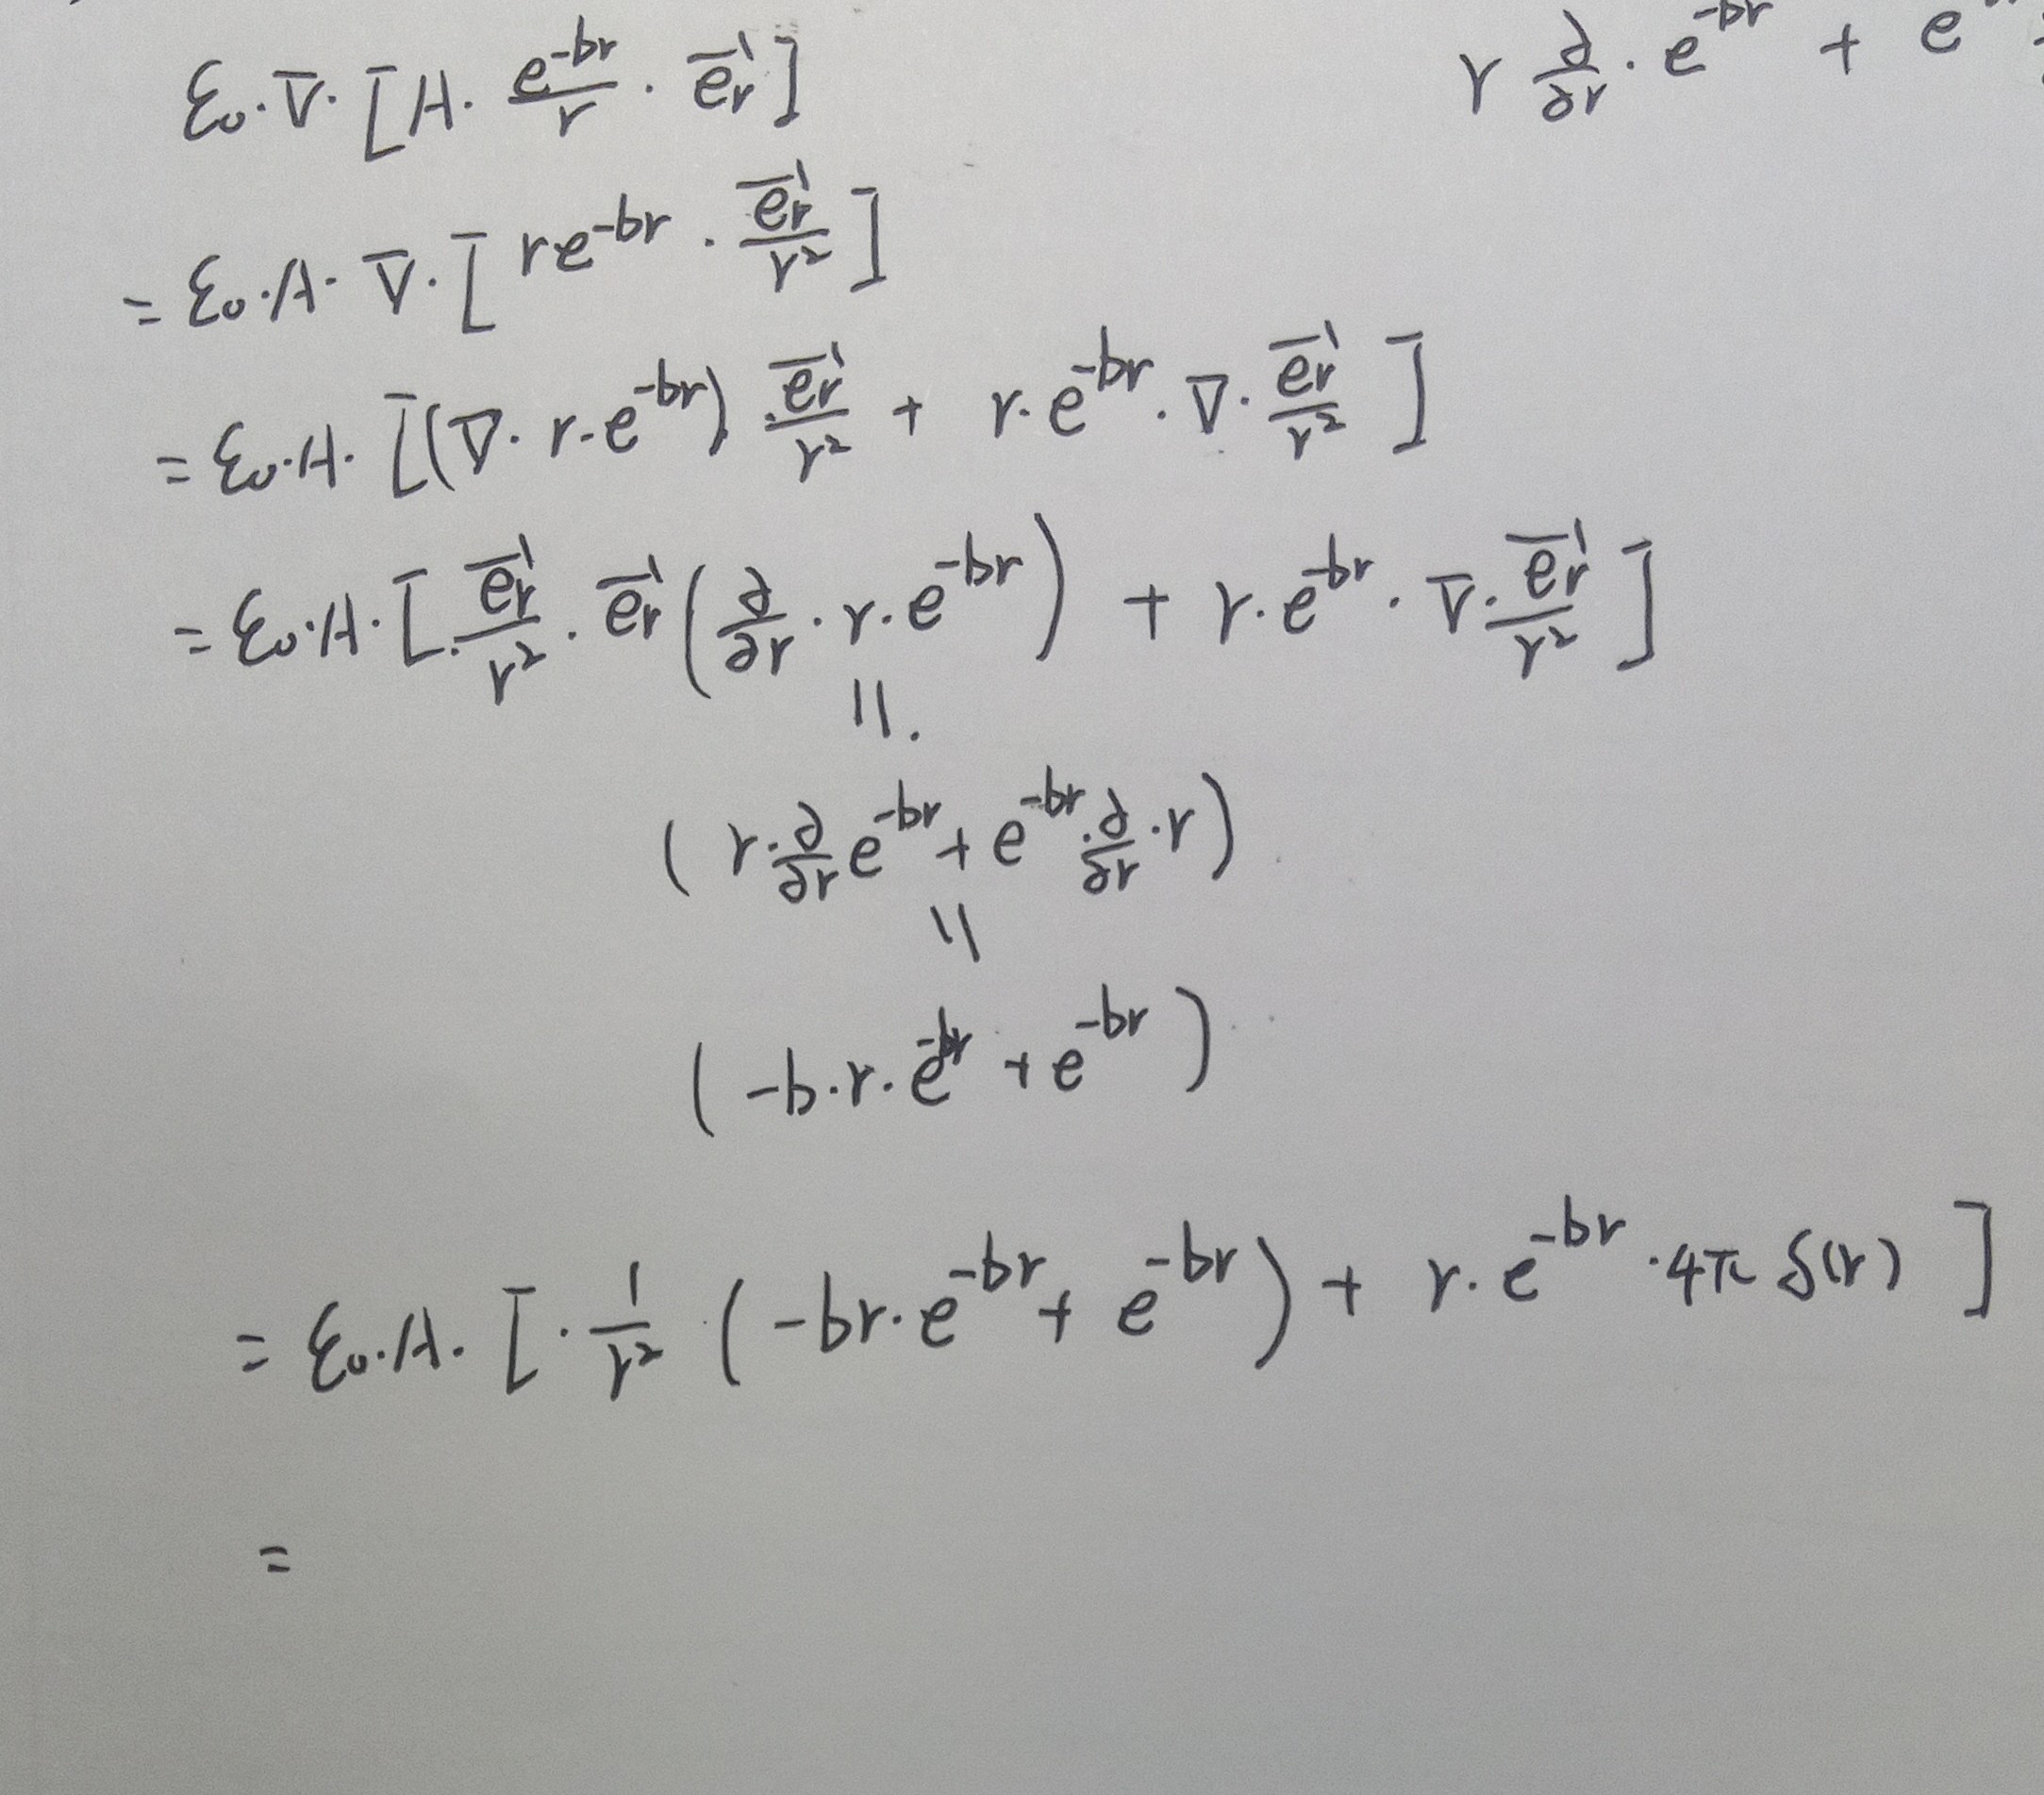 ε₀·∇·[A·e^{-br}/r · \vec{e_r}]
r ∂/∂r · e^{-br} + e
= ε₀·A·∇·[re^{-br} · \vec{e_r}/r²]
= ε₀·A·[(∇·r·e^{-br})·\vec{e_r}/r² + r·e^{-br}·∇·\vec{e_r}/r²]
= ε₀·A·[·\vec{e_r}/r² · \vec{e_r}(∂/∂r · r·e^{-br}) + r·e^{-br}·∇·\vec{e_r}/r²]
||.
(r·∂/∂r e^{-br} + e^{-br}·∂/∂r·r)
||
(-b·r·e^{-br} + e^{-br})
= ε₀·A·[·1/r² (-br·e^{-br} + e^{-br}) + r·e^{-br}·4π δ(r)]
=